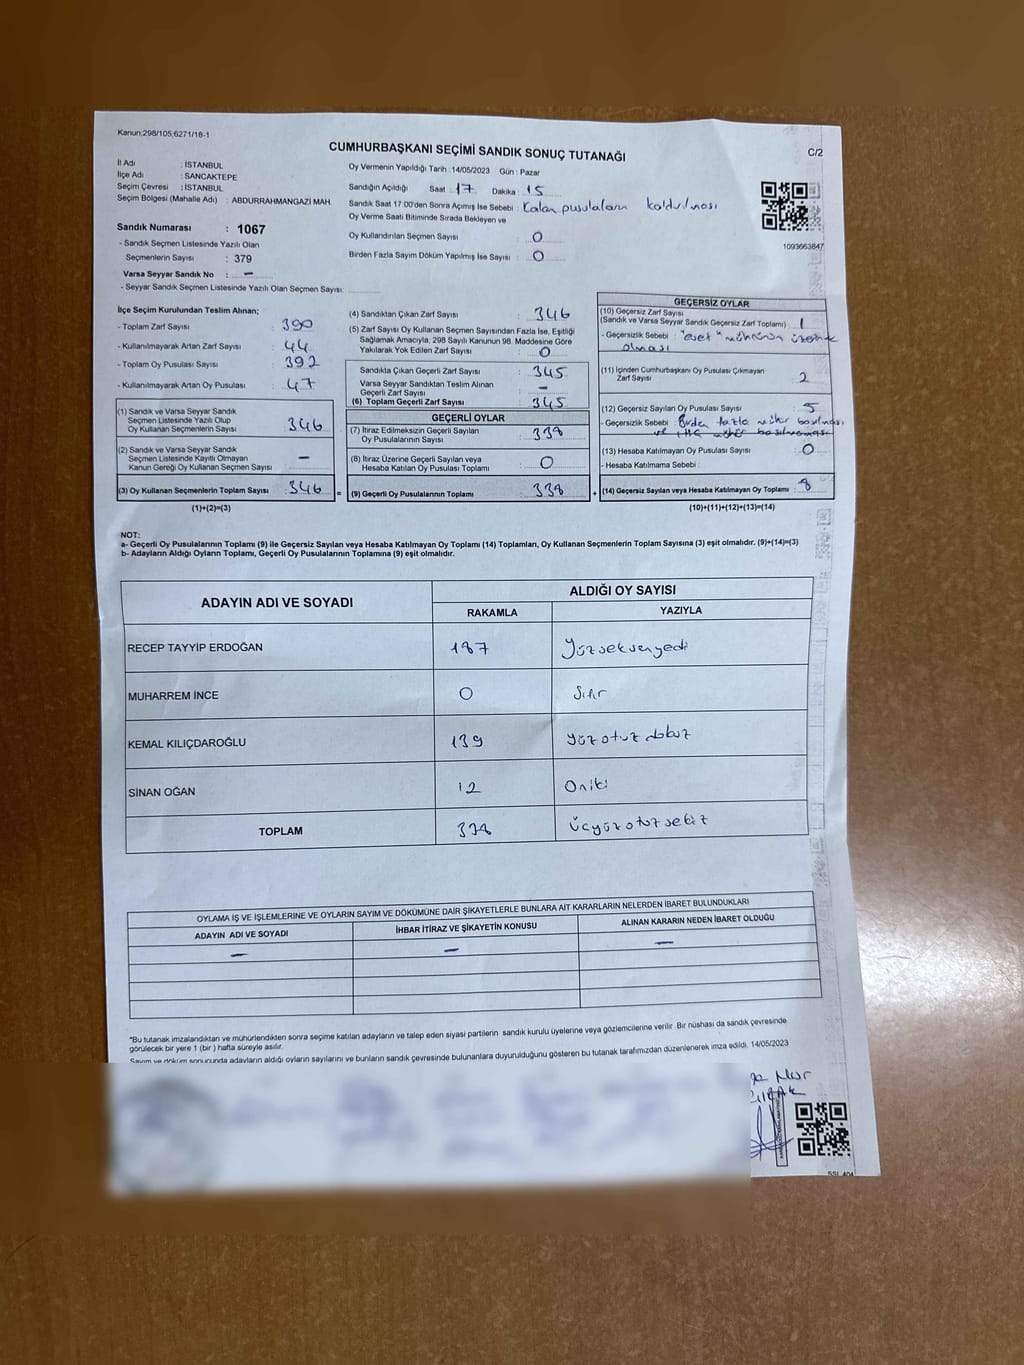 Kanun:298/105,6271/18-1
CUMHURBAŞKANI SEÇİMİ SANDIK SONUÇ TUTANAĞI
C/2
İl Adı : İSTANBUL
İlçe Adı : SANCAKTEPE
Seçim Çevresi : İSTANBUL
Seçim Bölgesi (Mahalle Adı) : ABDURRAHMANGAZİ MAH.
Sandık Numarası : 1067
- Sandık Seçmen Listesinde Yazılı Olan
Seçmenlerin Sayısı : 379
Varsa Seyyar Sandık No : –
- Seyyar Sandık Seçmen Listesinde Yazılı Olan Seçmen Sayısı:
Oy Vermenin Yapıldığı Tarih : 14/05/2023 Gün : Pazar
Sandığın Açıldığı Saat 17 Dakika : 15
Sandık Saat 17:00'den Sonra Açımış İse Sebebi : Kalan pusulaların kaldırılması
Oy Verme Saati Bitiminde Sırada Bekleyen ve
Oy Kullandırılan Seçmen Sayısı : 0
Birden Fazla Sayım Döküm Yapılmış İse Sayısı : 0
1093663847
İlçe Seçim Kurulundan Teslim Alınan;
- Toplam Zarf Sayısı : 390
- Kullanılmayarak Artan Zarf Sayısı : 44
- Toplam Oy Pusulası Sayısı : 392
- Kullanılmayarak Artan Oy Pusulası : 47
(1) Sandık ve Varsa Seyyar Sandık
Seçmen Listesinde Yazılı Olup
Oy Kullanan Seçmenlerin Sayısı : 346
(2) Sandık ve Varsa Seyyar Sandık
Seçmen Listesinde Kayıtlı Olmayan
Kanun Gereği Oy Kullanan Seçmen Sayısı : –
(3) Oy Kullanan Seçmenlerin Toplam Sayısı : 346 =
(1)+(2)=(3)
(4) Sandıktan Çıkan Zarf Sayısı : 346
(5) Zarf Sayısı Oy Kullanan Seçmen Sayısından Fazla İse, Eşitliği
Sağlamak Amacıyla, 298 Sayılı Kanunun 98. Maddesine Göre
Yakılarak Yok Edilen Zarf Sayısı : 0
Sandıkta Çıkan Geçerli Zarf Sayısı : 345
Varsa Seyyar Sandıktan Teslim Alınan
Geçerli Zarf Sayısı : –
(6) Toplam Geçerli Zarf Sayısı : 345
GEÇERLİ OYLAR
(7) İtiraz Edilmeksizin Geçerli Sayılan
Oy Pusulalarının Sayısı : 338
(8) İtiraz Üzerine Geçerli Sayılan veya
Hesaba Katılan Oy Pusulası Toplamı : 0
(9) Geçerli Oy Pusulalarının Toplamı : 338 +
GEÇERSİZ OYLAR
(10) Geçersiz Zarf Sayısı
(Sandık ve Varsa Seyyar Sandık Geçersiz Zarf Toplamı) : 1
- Geçersizlik Sebebi : "evet" mührünün üzerinde
olması
(11) İçinden Cumhurbaşkanı Oy Pusulası Çıkmayan
Zarf Sayısı : 2
(12) Geçersiz Sayılan Oy Pusulası Sayısı : 5
- Geçersizlik Sebebi : Birden fazla mühür basılması
ve
(13) Hesaba Katılmayan Oy Pusulası Sayısı : 0
- Hesaba Katılmama Sebebi :
(14) Geçersiz Sayılan veya Hesaba Katılmayan Oy Toplamı : 8
(10)+(11)+(12)+(13)=(14)
NOT:
a- Geçerli Oy Pusulalarının Toplamı (9) ile Geçersiz Sayılan veya Hesaba Katılmayan Oy Toplamı (14) Toplamları, Oy Kullanan Seçmenlerin Toplam Sayısına (3) eşit olmalıdır. (9)+(14)=(3)
b- Adayların Aldığı Oyların Toplamı, Geçerli Oy Pusulalarının Toplamına (9) eşit olmalıdır.
ADAYIN ADI VE SOYADI
ALDIĞI OY SAYISI
RAKAMLA YAZIYLA
RECEP TAYYİP ERDOĞAN 187 Yüzseksenyedi
MUHARREM İNCE 0 Sıfır
KEMAL KILIÇDAROĞLU 139 yüzotuzdokuz
SİNAN OĞAN 12 Oniki
TOPLAM 338 Üçyüzotuzsekiz
OYLAMA İŞ VE İŞLEMLERİNE VE OYLARIN SAYIM VE DÖKÜMÜNE DAİR ŞİKAYETLERLE BUNLARA AİT KARARLARIN NELERDEN İBARET BULUNDUKLARI
ADAYIN ADI VE SOYADI İHBAR İTİRAZ VE ŞİKAYETİN KONUSU ALINAN KARARIN NEDEN İBARET OLDUĞU
– – –
*Bu tutanak imzalandıktan ve mühürlendikten sonra seçime katılan adayların ve talep eden siyasi partilerin sandık kurulu üyelerine veya gözlemcilerine verilir. Bir nüshası da sandık çevresinde
görülecek bir yere 1 (bir) hafta süreyle asılır.
Sayım ve döküm sonucunda adayların aldığı oyların sayılarını ve bunların sandık çevresinde bulunanlara duyurulduğunu gösteren bu tutanak tarafımızdan düzenlenerek imza edildi. 14/05/2023
Nur